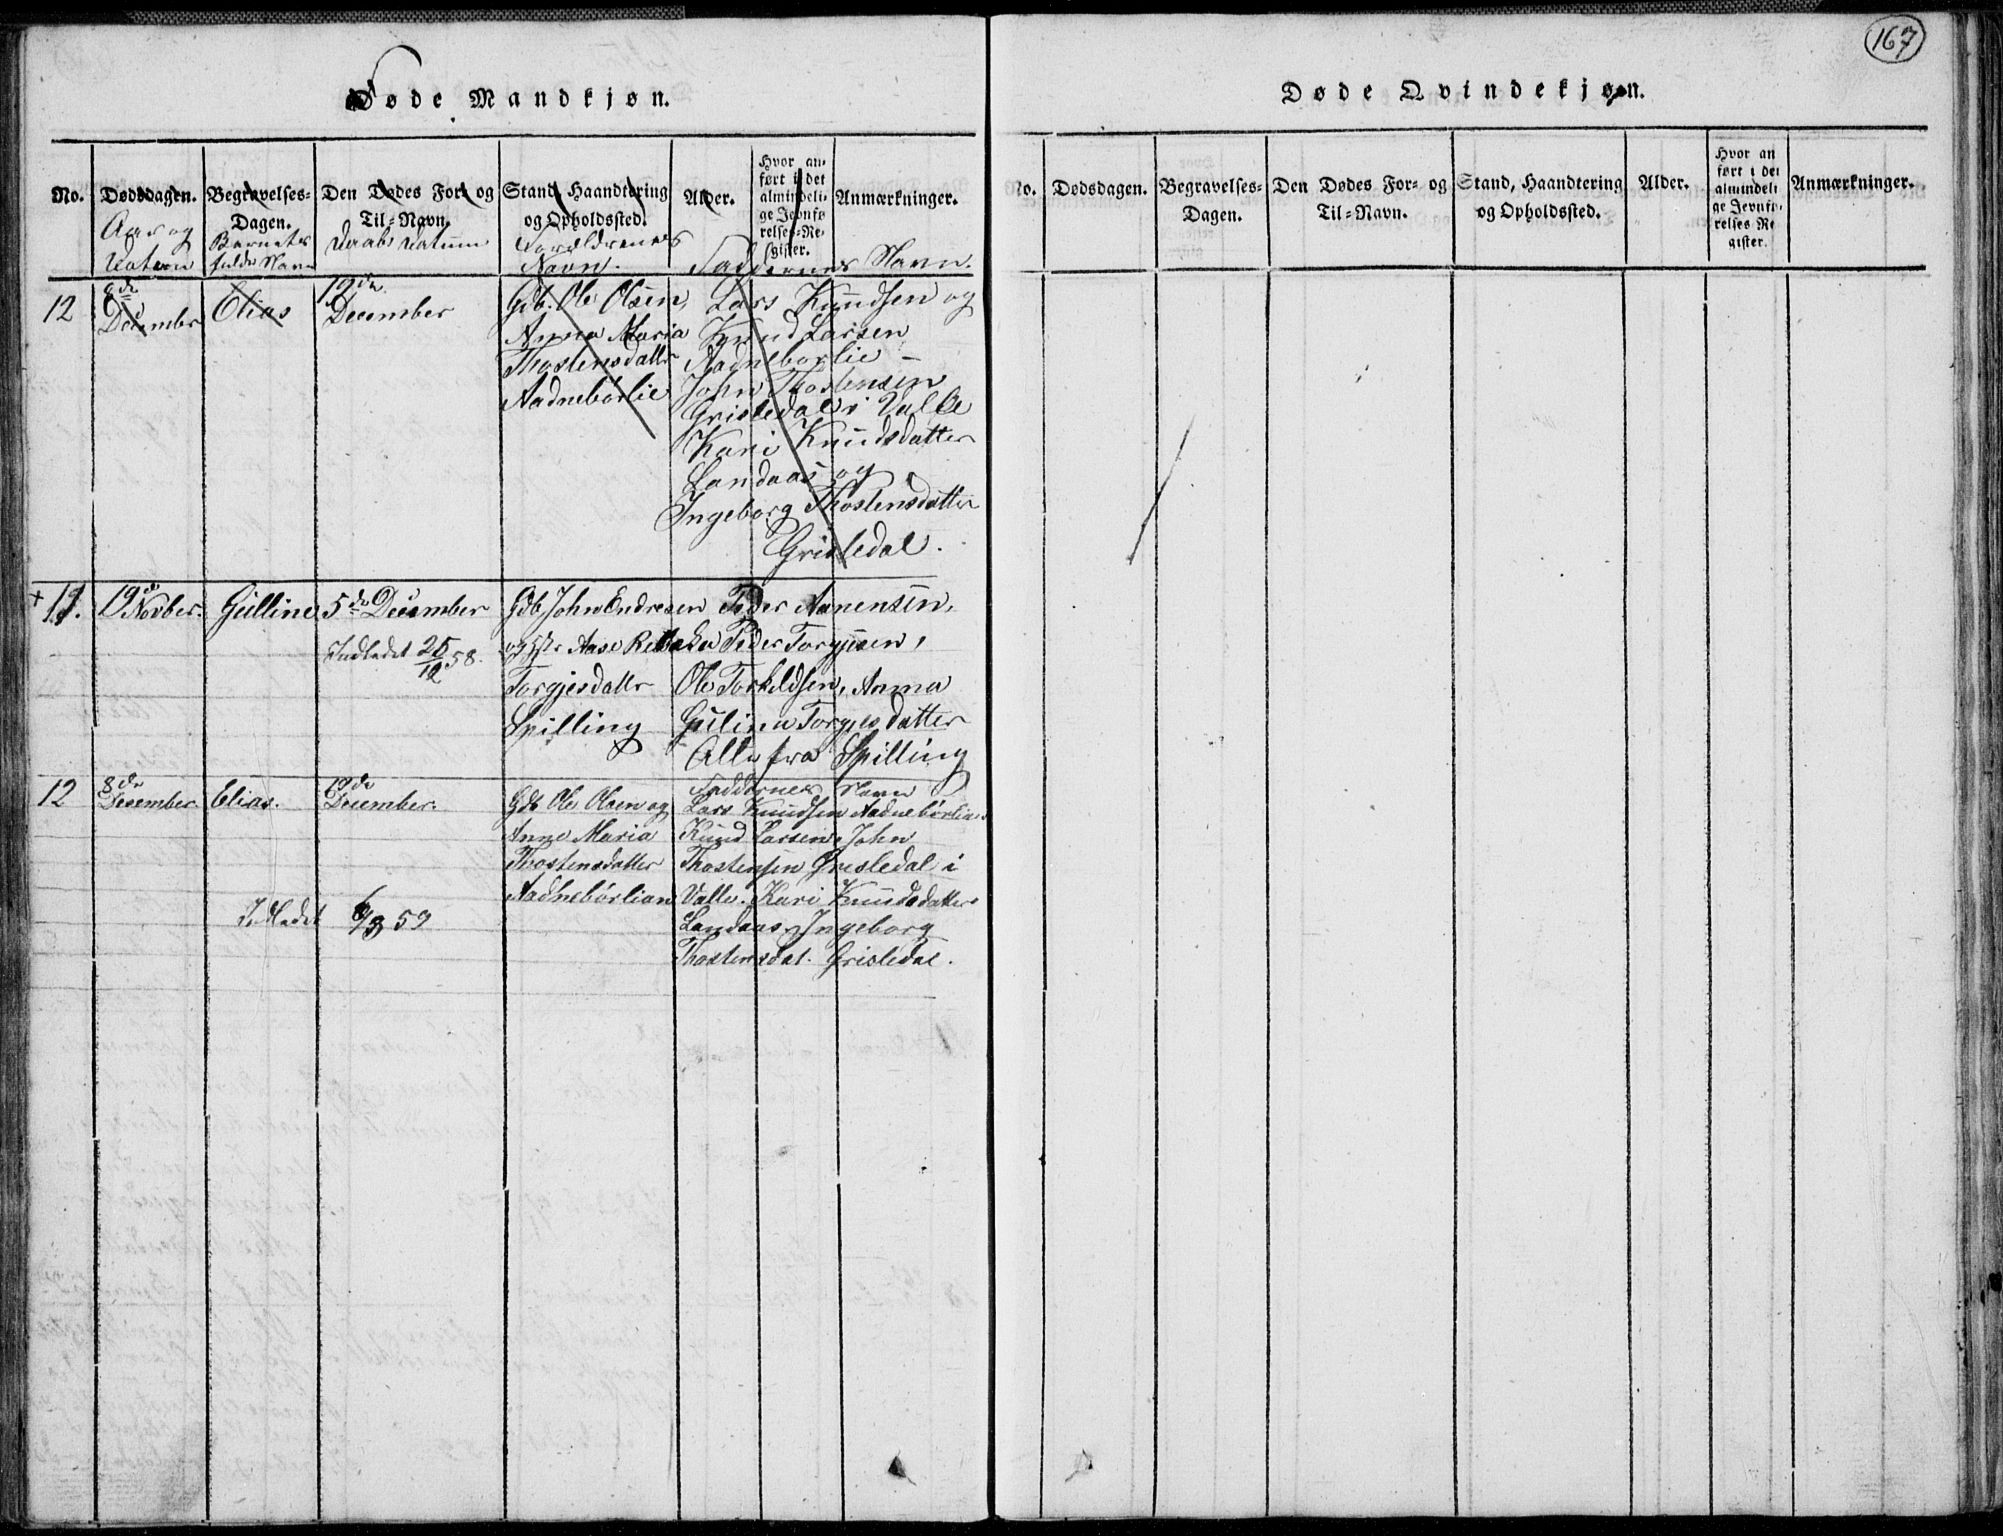 167
Døde Mandkjøn.
No. Dødsdagen. Begravelses-Dagen. Den Dødes For- og Til-Navn. Stand, Haandtering og Opholdssted. Alder. Hvor anført i det almindelige Jevnførelses-Register. Anmærkninger.
Aar og Datum
Barnets fulde Navn
Daabs Datum
Forældrenes Navn.
Faddernes Navn.
12
8de December
Elias
19de December
Gdb. Ole Olsen,
Anna Maria
Thostensdattr
Aadnebørlie
Lars Knudsen og
Knud Larsen
Aadneborlie –
John Thostensen
Grisledal i Valle
Kari Knudsdatter
Landaas og
Ingeborg Thostensdatter
Grisledal.
+ 11.
19de Novber.
Gulline
5de December
Indledet 25/12 58.
Gdb. John Endresen
og Hstr Aase Rebekka
Torgjesdattr
Spilling
Peder Aanensen,
Peder Torgjesen,
Ole Torkeldsen, Anna
Gulina Torgjesdatter
Alle fra Spilling
12
8de Desember
Elias.
19de December.
Gdb Ole Olsen og
Anne Maria
Thostensdatter
Aadnebørlian
Indledet 6/3 59
Faddernes Navn
Lars Knudsen Aadnebørlian
Knud Larsen, John
Thostensen Grisledal i
Valle. Kari Knudsdatter
Landaas, Ingeborg
Thostensdat. Grisledal.
Døde Qvindekjøn.
No. Dødsdagen. Begravelses-Dagen. Den Dødes For- og Til-Navn. Stand, Haandtering og Opholdssted. Alder. Hvor anført i det almindelige Jevnførelses Register. Anmærkninger.